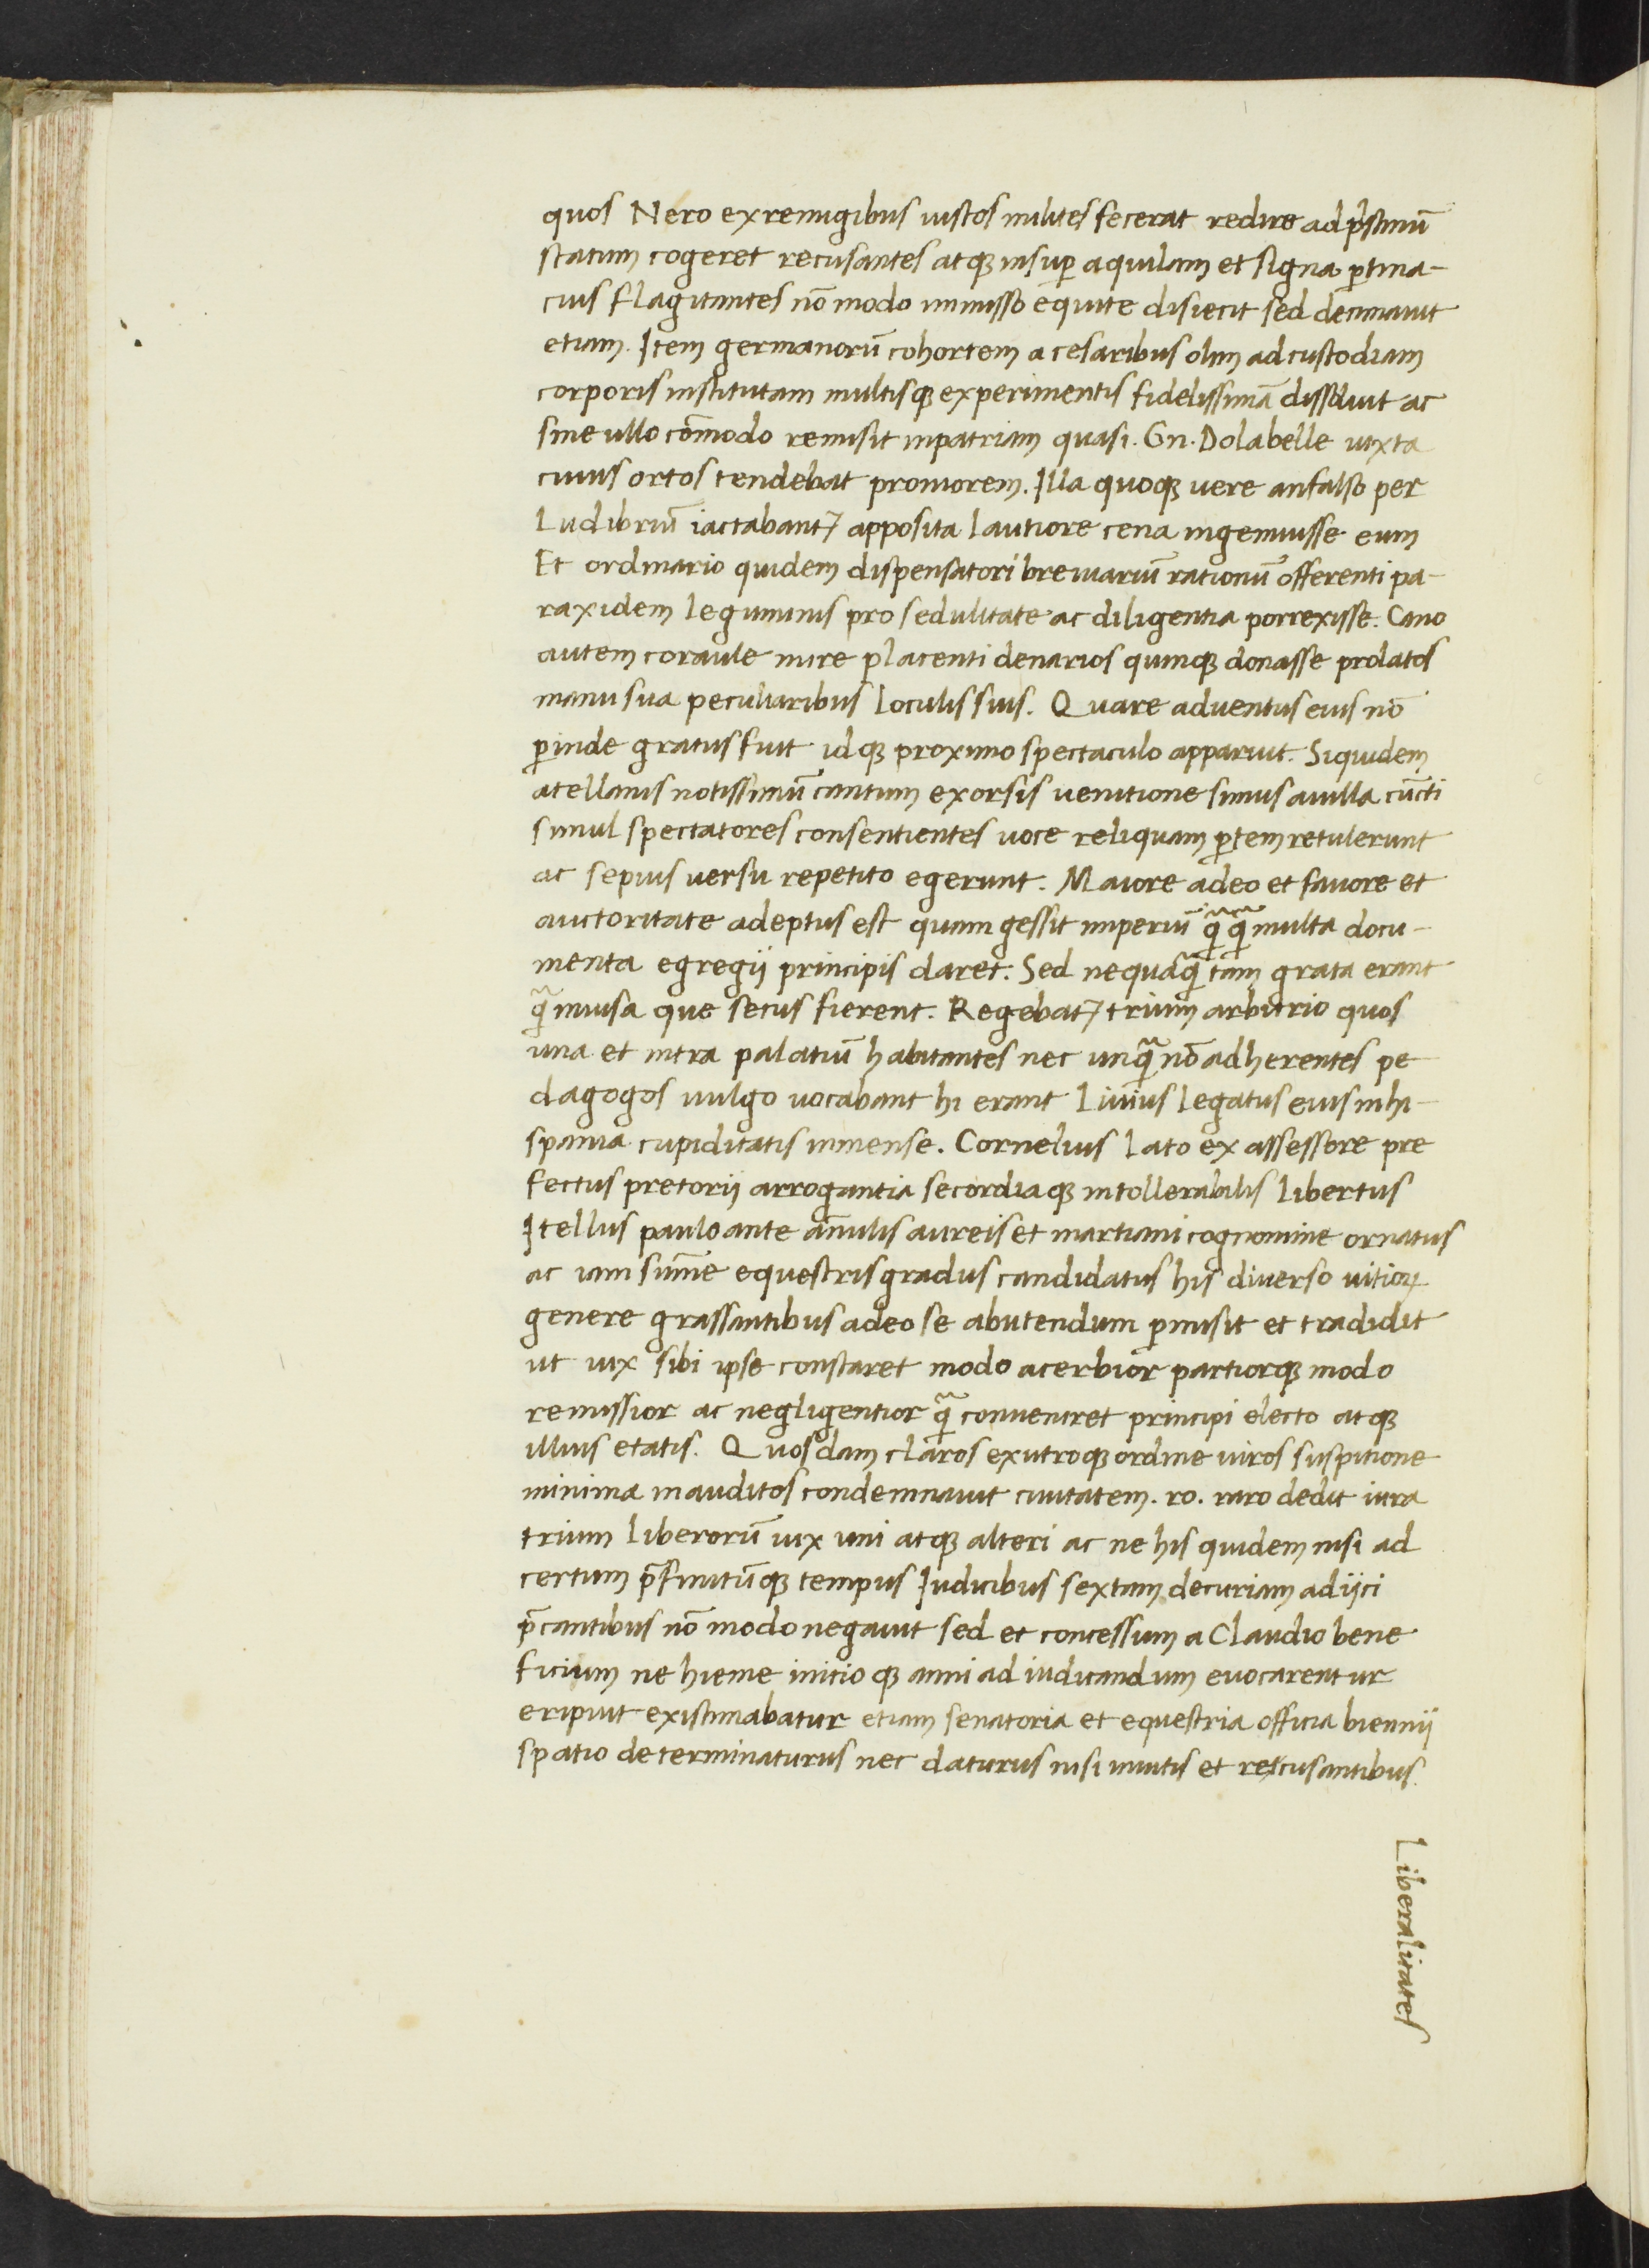 quos Nero ex remigibus iustos milites fecerat redire ad pͥstinū
statum cogeret recusantes atqꝫ insuꝑ aquilam et signa ꝑtina-
cius flagitantes nō modo immisso equite disiecit sed decimauit
etiam. Item germanorū cohortem a cesaribus olim ad custodiam
corporis institutam multisqꝫ experimentis fidelissimā dissoluit ac
sine ullo cōmodo remisit in patriam quasi. Gn. Dolabelle iuxta
cuius ortos tendebat proniorem. Illa quoqꝫ uere an falso per
Ludibriū iactabantꝛ apposita lautiore cena ingemuisse eum
Et ordinario quidem dispensatori breuiariū rationū offerenti pa-
raxidem leguminis pro sedulitate ac diligentia porrexisse. Cano
autem coraule mire placenti denarios quinqꝫ donasse prolatos
manu sua peculiaribus loculis suis. Quare aduentus eius nō
ꝑinde gratus fuit idqꝫ proximo spectaculo apparuit. Siquidem
atellanis notissimū cantum exorsis uenitione simus auilla cūcti
simul spectatores consentientes uoce reliquam ꝑtem retulerunt
ac sepius uersu repetito egerunt. Maiore adeo et fauore et
auctoritate adeptus est quam gessit imperiū qᷓ qᷓ multa docu-
menta egregij principis daret. Sed nequaqᷓ tam grata erant
qᷓ inuisa que secus fierent. Regebatꝛ trium arbitrio quos
una et intra palatiū habitantes nec unqᷓ nō adherentes pe
dagogos uulgo uocabant hi erant Liuius legatus eius in hi-
spania cupiditatis inmense. Cornelius lato ex assessore pre
fectus pretorij arrogantia secordiaqꝫ intollerabilis libertus
Itellus paulo ante ānulis aureis et martiani cognomine ornatus
ac iam sūme equestris gradus candidatus his diuerso uitioꝝ
genere grassantibus adeo se abutendum ꝑmisit et tradidit
ut uix sibi ipse constaret modo acerbior partiorqꝫ modo
remissior ac negligentior qᷓ conueniret principi electo atqꝫ
illius etatis. Quosdam claros ex utroqꝫ ordine uiros suspitione
minima inauditos condemnauit ciuitatem. ro. raro dedit iura
trium liberorū uix uni atqꝫ alteri ac ne his quidem nisi ad
certum p̄finitūqꝫ tempus Iudicibus sextam decuriam adijci
p̄cantibus nō modo negauit sed et concessum a Claudio bene
ficium ne hieme initioqꝫ anni ad iudicandum euocarentur
eripuit existimabatur etiam senatoria et equestria officia biennij
spatio determinaturus nec daturus nisi inuitis et recusantibus.
Liberalitates